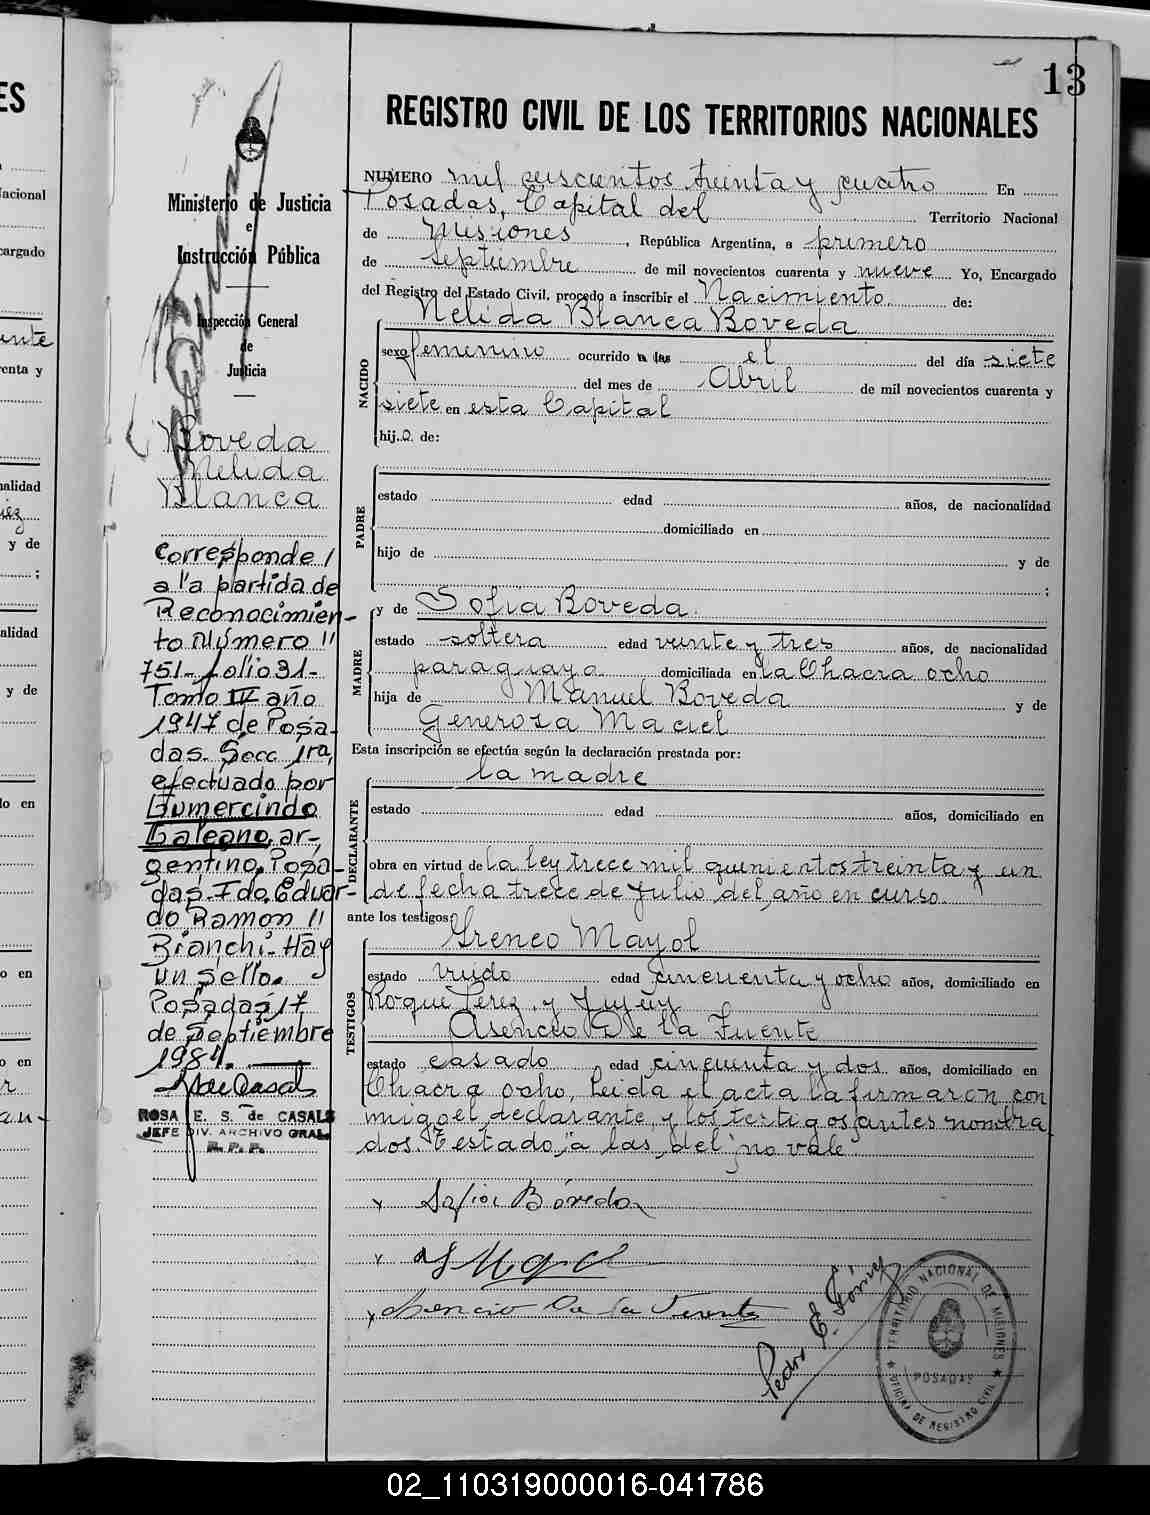 13
REGISTRO CIVIL DE LOS TERRITORIOS NACIONALES
Ministerio de Justicia
e
Instrucción Pública
Inspección General
de
Justicia
Boveda
Nelida
Blanca
Corresponde /
a la partida de
Reconocimien-
to Número "
751- folio 31-
Tomo IV año
1947 de Posa-
das. Secc 1ra,
efectuado por
Gumercindo
Galeano, ar-
gentino. Posa-
das. Fdo. Eduar-
do Ramon "
Bianchi. Hay
un sello.
Posadas, 17
de septiembre
1984.
ROSA E. S. de CASALS
JEFE DIV. ARCHIVO GRAL.
R. P. P.
NUMERO mil seiscientos treinta y cuatro En
Posadas, Capital del Territorio Nacional
de Misiones, República Argentina, a primero
de septiembre de mil novecientos cuarenta y nueve Yo, Encargado
del Registro del Estado Civil, procedo a inscribir el Nacimiento de:
Nelida Blanca Boveda
NACIDO
sexo femenino ocurrido a las el del día siete
del mes de Abril de mil novecientos cuarenta y
siete en esta Capital
hij.a de:
PADRE
estado edad años, de nacionalidad
domiciliado en
hijo de y de
;
MADRE
y de Sofia Boveda
estado soltera edad veinte y tres años, de nacionalidad
paraguaya domiciliada en la Chacra ocho
hija de Manuel Boveda y de
Generosa Maciel
Esta inscripción se efectúa según la declaración prestada por:
la madre
DECLARANTE
estado edad años, domiciliado en
obra en virtud de la ley trece mil quinientos treinta y un
de fecha trece de Julio del año en curso.
ante los testigos Ireneo Mayol
TESTIGOS
estado viudo edad cincuenta y ocho años, domiciliado en
Roque Perez y Jujuy
Asencio De la Fuente
estado casado edad cincuenta y dos años, domiciliado en
Chacra ocho. Leida el acta la firmaron con
migo el declarante y los testigos antes nombra
dos. Testado "a las, del" no vale.
x Sofia Bóveda
x
x Asencio De la Fuente
Pedro E. Gómez
TERRITORIO NACIONAL DE MISIONES
POSADAS
OFICINA DE REGISTRO CIVIL
ES
Nacional
encargado
enta y
nalidad
y de
;
alidad
y de
do en
o en
o en
02_110319000016-041786